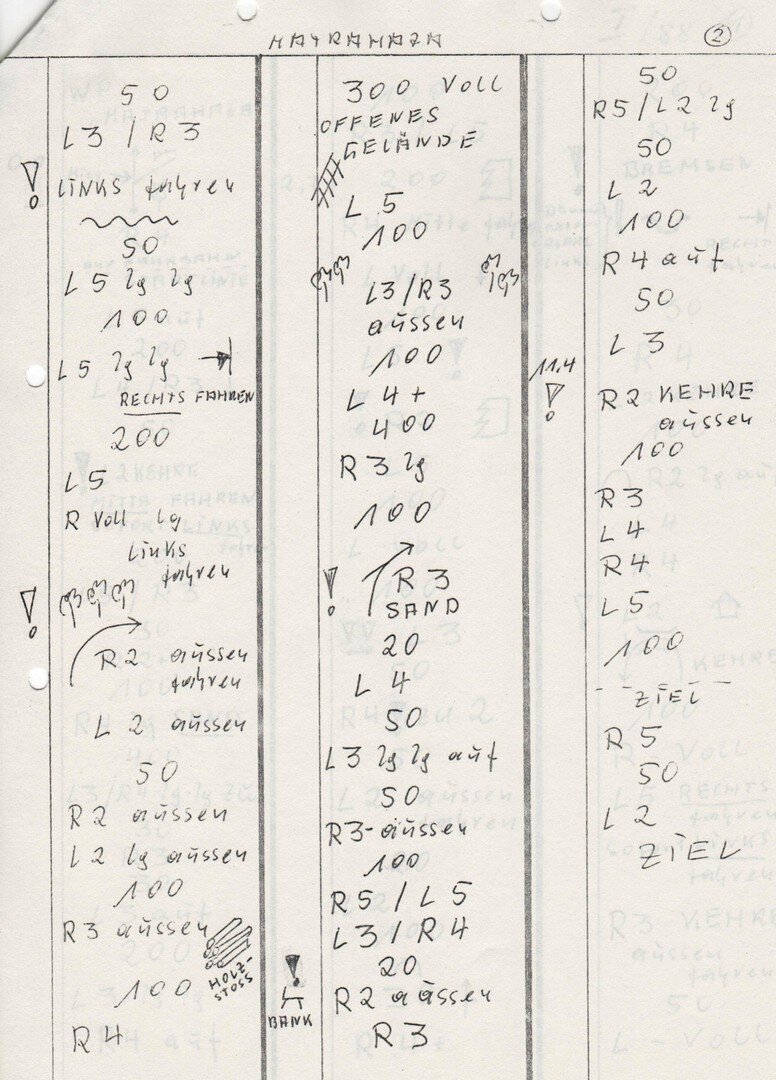 MAYRAHAZA
2
50
L3 / R3
! LINKS fahren
50
L5 lg lg
100
L5 lg lg
RECHTS FAHREN
200
L5
R Voll lg
Links
fahren
!
R2 aüssen
fahren
L 2 aüssen
50
R2 aüssen
L2 lg aüssen
100
R3 aüssen
HOLZ-
STOSS
100
R4
300 Voll
OFFENES
GELÄNDE
L 5
100
L3/R3
aüssen
100
L4+
400
R3 lg
100
! R3
SAND
20
L 4
50
L3 lg lg aüf
50
R3-aüssen
100
R5 / L5
L3 / R4
20
!
BANK
R2 aüssen
R3
50
R5/L2 lg
50
L2
100
R4 aüf
50
L 3
11.4
!
R2 KEHRE
aüssen
100
R3
L4
R4
L5
100
ZIEL
R5
50
L2
ZIEL